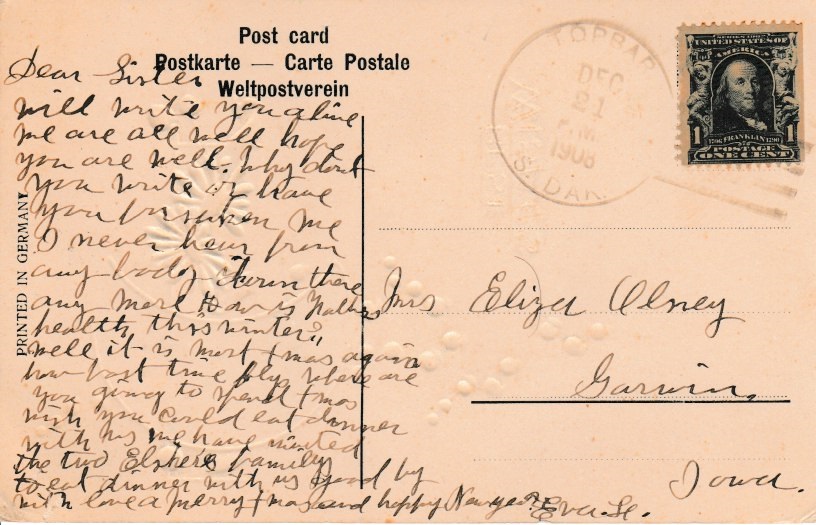 Post card
Postkarte — Carte Postale
Weltpostverein
PRINTED IN GERMANY
TOPBAR
DEC
21
PM
1908
S. DAK.
SERIES 1902
UNITED STATES OF
AMERICA
1 FRANKLIN 1
POSTAGE
ONE CENT
Dear Sister
will write you a line
we are all well hope
you are well. why dont
you write or have
you forsaken me
I never hear from
any body down there
any more How is Fathers
health this winter,
well it is most Xmas again
how fast time flys where are
you going to spend Xmas
wish you could eat dinner
with us we have invited
the two families
to eat dinner with us Good by
with love a merry Xmas and happy New year. Eva
Mrs Eliza Olney
Garwin,
Iowa.